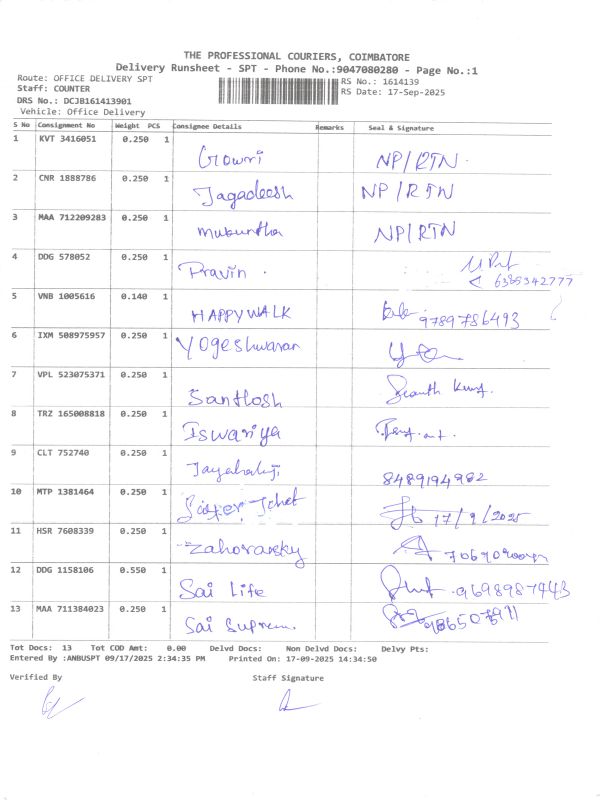 THE PROFESSIONAL COURIERS, COIMBATORE
Delivery Runsheet - SPT - Phone No.:9047080280 - Page No.:1
Route: OFFICE DELIVERY SPT RS No.: 1614139
Staff: COUNTER RS Date: 17-Sep-2025
DRS No.: DCJB161413901
Vehicle: Office Delivery
S No Consignment No Weight PCS Consignee Details Remarks Seal & Signature
1 KVT 3416051 0.250 1 Gowri NP/RTN.
2 CNR 1888786 0.250 1 Jagadeesh NP/RTN
3 MAA 712209283 0.250 1 Mukuntha NP/RTN
4 DDG 578052 0.250 1 Pravin. 6385342777
5 VNB 1005616 0.140 1 HAPPY WALK 9789786493
6 IXM 508975957 0.250 1 Yogeshwaran
7 VPL 523075371 0.250 1 Santhosh
8 TRZ 165008818 0.250 1 Iswariya
9 CLT 752740 0.250 1 8489194982
10 MTP 1381464 0.250 1 17/9/2025
11 HSR 7608339 0.250 1 Zahoransky
12 DDG 1158106 0.550 1 Sai Life 9698987443
13 MAA 711384023 0.250 1 Sai Suprem.
Tot Docs: 13 Tot COD Amt: 0.00 Delvd Docs: Non Delvd Docs: Delvy Pts:
Entered By :ANBUSPT 09/17/2025 2:34:35 PM Printed On: 17-09-2025 14:34:50
Verified By Staff Signature